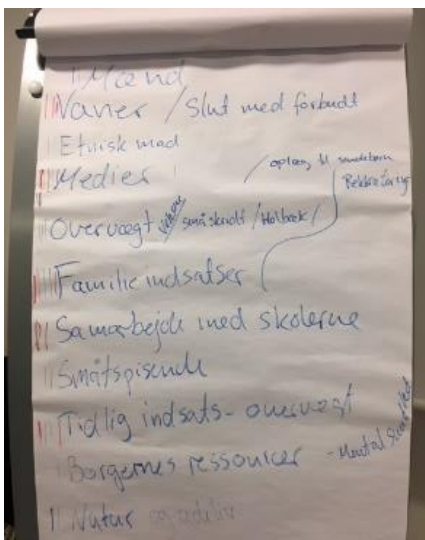 Mænd
Vaner / Slut med forbudt
Etnisk mad
/ oplæg til sundebørn
Medier
Rekruttering
Overvægt Voksne småskridt / Holbæk /
Familieindsatser
Samarbejde med skolerne
Småtspisende
Tidlig indsats - overvægt
Borgernes ressourcer - Mental Sundhed
Natur